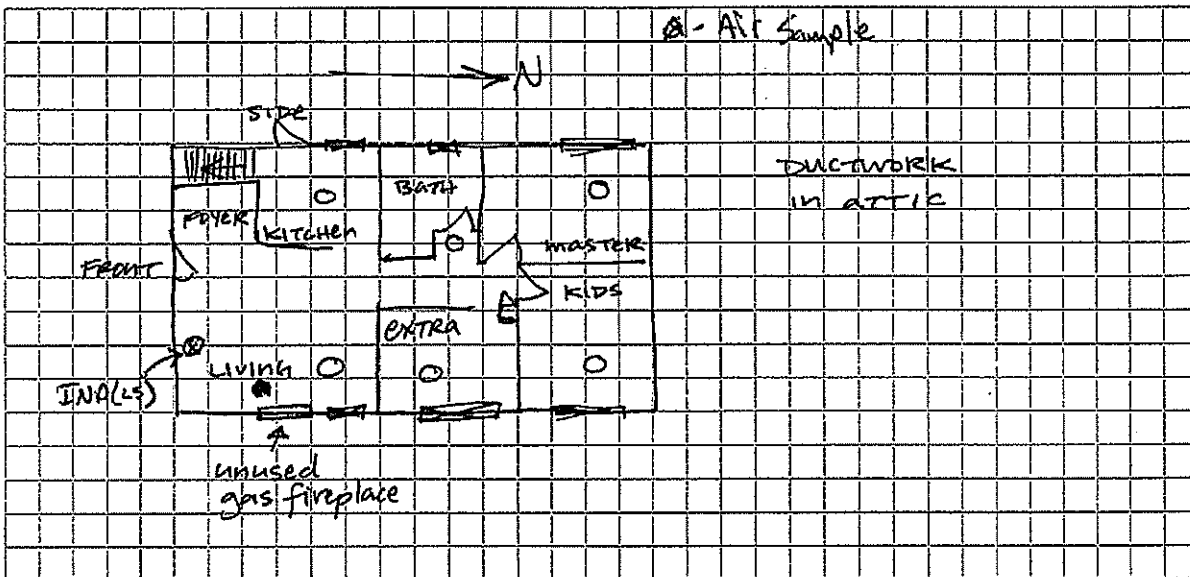 - Air Sample
N
SIDE
DUCTWORK
in attic
BATH
FOYER
KITCHEN
MASTER
FRONT
KIDS
EXTRA
LIVING
unused
gas fireplace